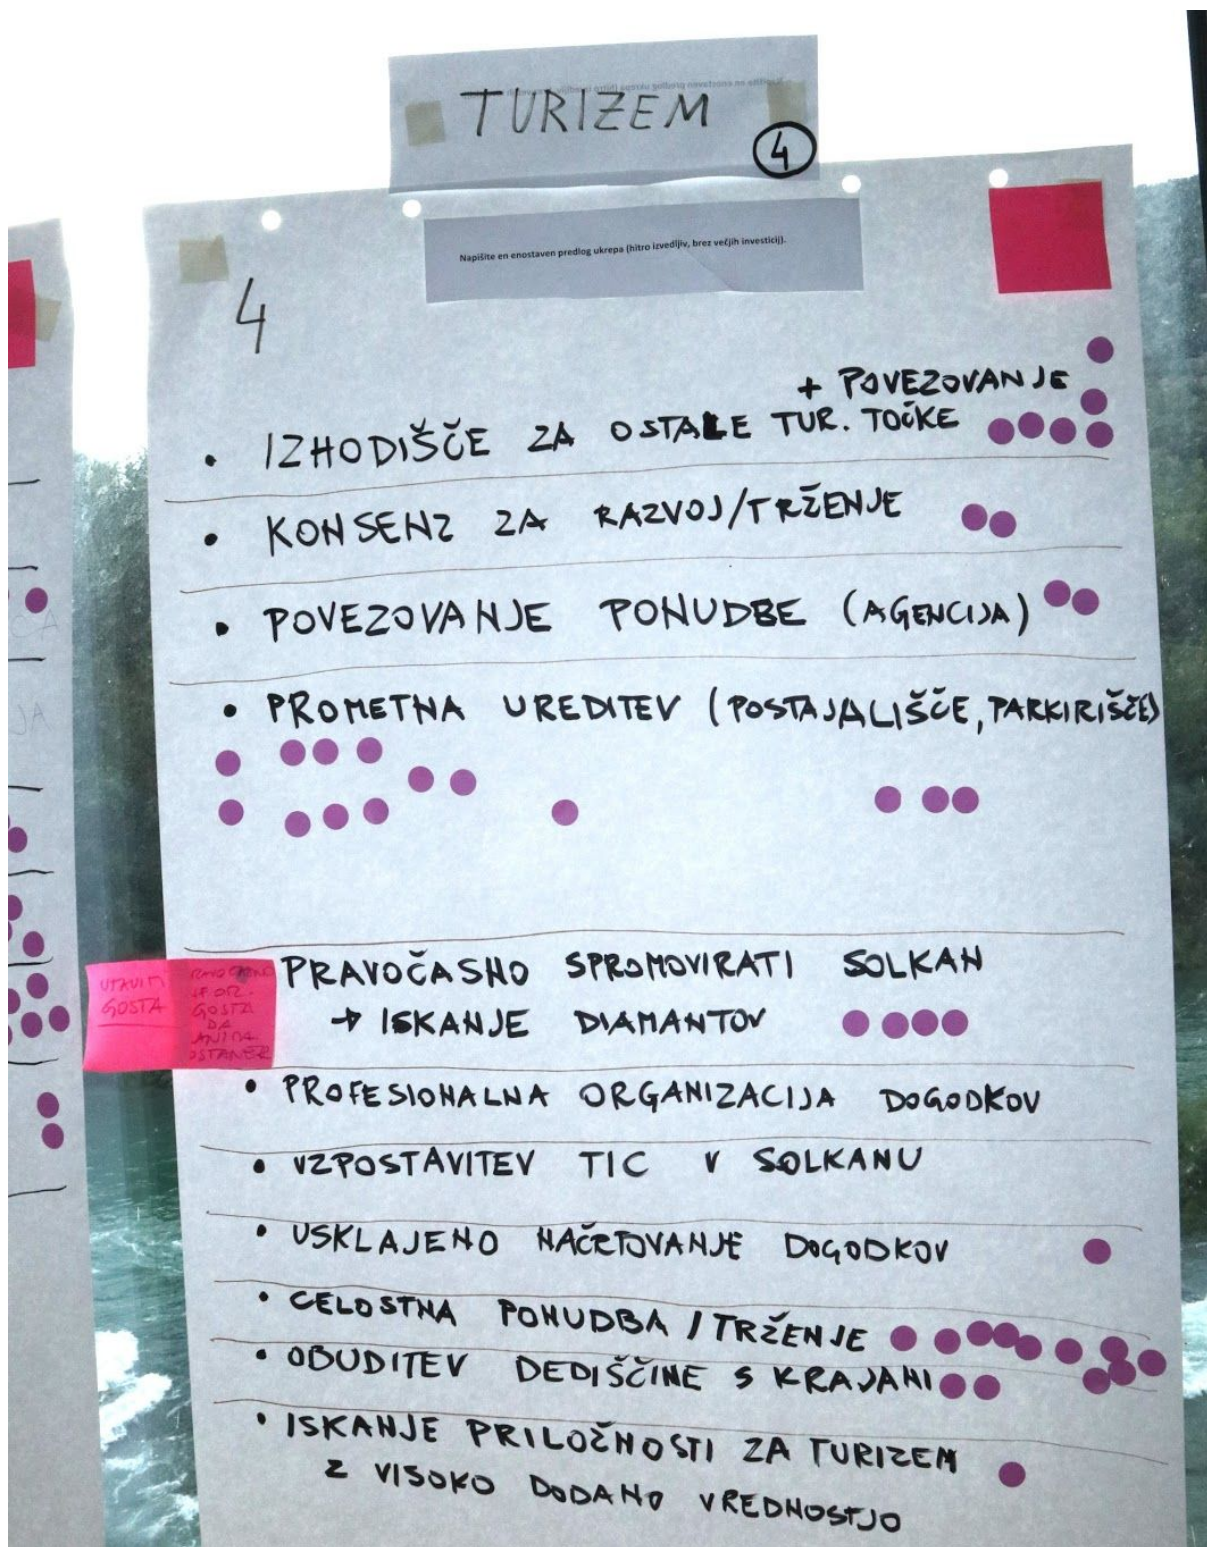 TURIZEM
4
Napišite en enostaven predlog ukrepa (hitro izvedljiv, brez večjih investicij).
4
+ POVEZOVANJE
• IZHODIŠČE ZA OSTALE TUR. TOČKE
• KONSENZ ZA RAZVOJ/TRŽENJE
• POVEZOVANJE PONUDBE (AGENCIJA)
• PROMETNA UREDITEV (POSTAJALIŠČE, PARKIRIŠČE)
PRAVOČASNO SPROMOVIRATI SOLKAN
→ ISKANJE DIAMANTOV
GOSTA
GOSTA
DA
• PROFESIONALNA ORGANIZACIJA DOGODKOV
• VZPOSTAVITEV TIC V SOLKANU
• USKLAJENO NAČRTOVANJE DOGODKOV
• CELOSTNA PONUDBA / TRŽENJE
• OBUDITEV DEDIŠČINE S KRAJANI
• ISKANJE PRILOŽNOSTI ZA TURIZEM
Z VISOKO DODANO VREDNOSTJO